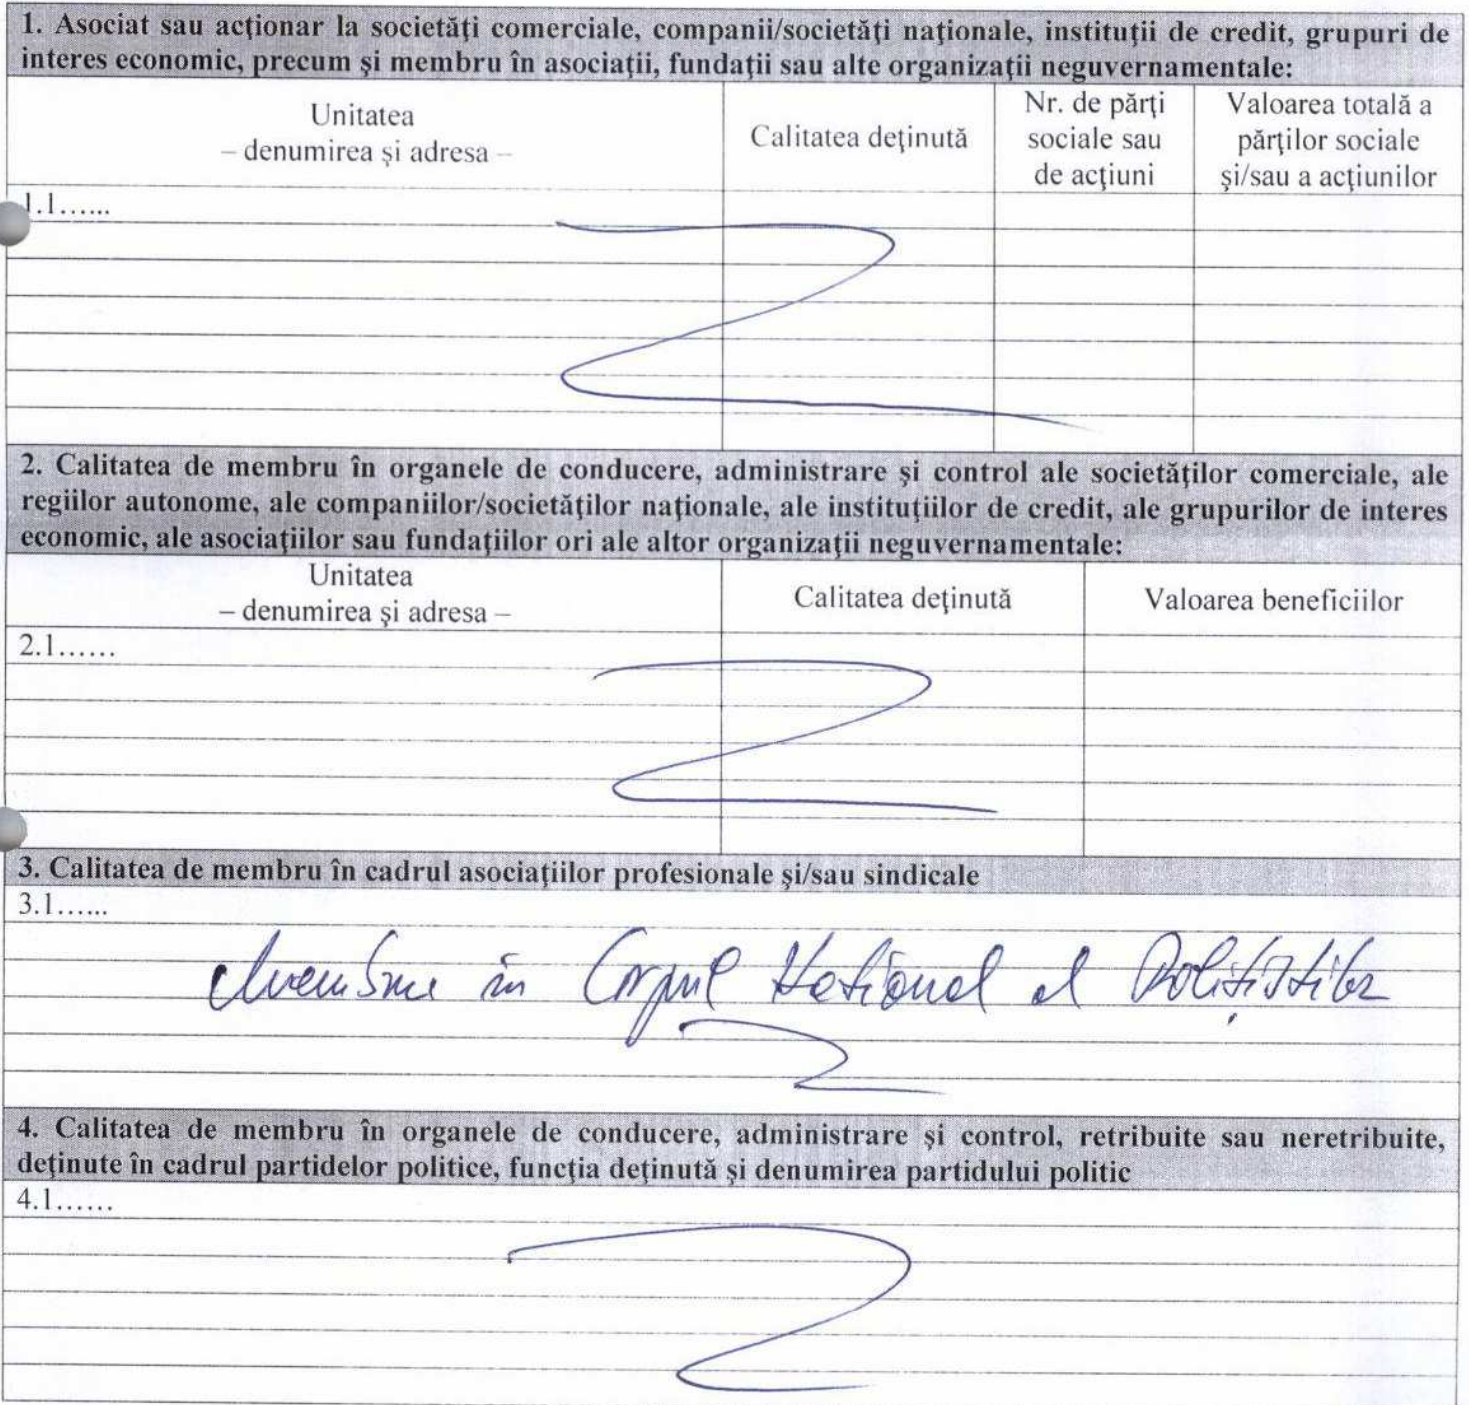 1. Asociat sau acţionar la societăţi comerciale, companii/societăţi naţionale, instituţii de credit, grupuri de
interes economic, precum şi membru în asociaţii, fundaţii sau alte organizaţii neguvernamentale:
Unitatea
– denumirea şi adresa –
Calitatea deţinută
Nr. de părţi
sociale sau
de acţiuni
Valoarea totală a
părţilor sociale
şi/sau a acţiunilor
1.1......
2. Calitatea de membru în organele de conducere, administrare şi control ale societăţilor comerciale, ale
regiilor autonome, ale companiilor/societăţilor naţionale, ale instituţiilor de credit, ale grupurilor de interes
economic, ale asociaţiilor sau fundaţiilor ori ale altor organizaţii neguvernamentale:
Unitatea
– denumirea şi adresa –
Calitatea deţinută
Valoarea beneficiilor
2.1......
3. Calitatea de membru în cadrul asociaţiilor profesionale şi/sau sindicale
3.1......
Membru în Corpul Național al Polițiștilor
4. Calitatea de membru în organele de conducere, administrare şi control, retribuite sau neretribuite,
deţinute în cadrul partidelor politice, funcţia deţinută şi denumirea partidului politic
4.1......